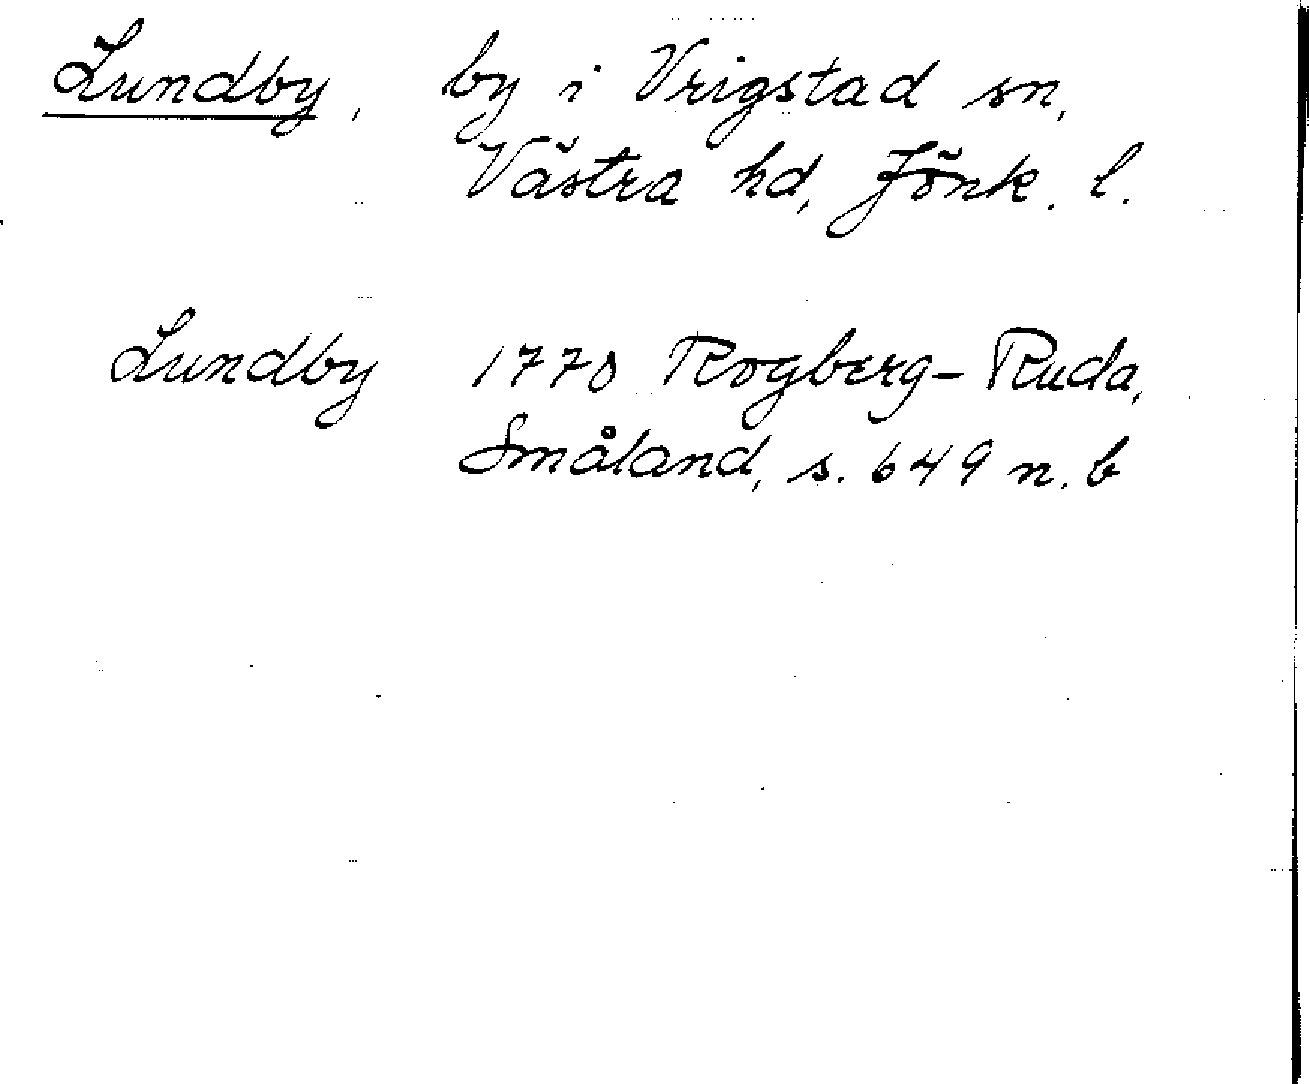 Lundby, by i Vrigstad sn,
Västra hd, Jönk. l.
Lundby 1770 Rogberg-Ruda,
Småland, s. 649 n. b